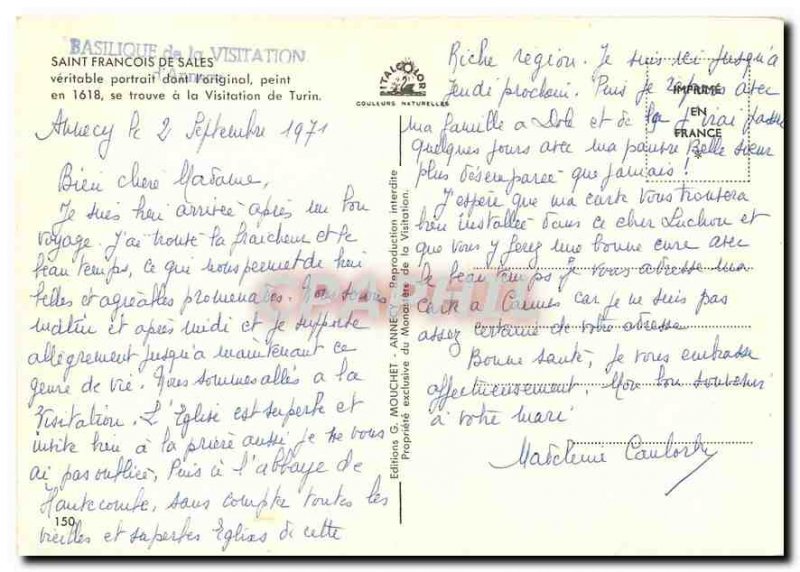 BASILIQUE de la VISITATION
d'Annecy
SAINT FRANCOIS DE SALES
véritable portrait dont l'original, peint
en 1618, se trouve à la Visitation de Turin.
ITALCOLOR
COULEURS NATURELLES
Annecy le 2 Septembre 1971
Bien chère Madame,
Je suis bien arrivée après un bon
voyage. J'ai trouvé la fraicheur et le
beau temps, ce qui nous permet de bien
belles et agréables promenades. Nous sortons
matin et après midi et je supporte
allègrement jusqu'à maintenant ce
genre de vie. Nous sommes allés a la
Visitation. L'Eglise est superbe et
invite bien à la prière aussi je ne vous
ai pas oubliée, Puis à l'abbaye de
Hautecombe, sans compter toutes les
vieilles et superbes Eglises de cette
150
Editions G. MOUCHET - ANNECY - Reproduction interdite
Propriété exclusive du Monastère de la Visitation.
IMPRIMÉ
EN
FRANCE
*
Riche région. Je suis ici jusqu'à
Jeudi prochain. Puis je repars avec
ma famille a Dole et de là j'irai passer
quelques jours avec ma pauvre Belle soeur
plus désemparée que jamais !
J'espère que ma carte vous trouvera
bien installée dans ce cher Luchon et
que vous y ferez une bonne cure avec
le beau temps je vous adresse ma
carte a Cannes car je ne suis pas
assez certaine de votre adresse
Bonne santé, je vous embrasse
affectueusement, Mon bon souvenir
à votre mari
Madeleine
CPAPHIL